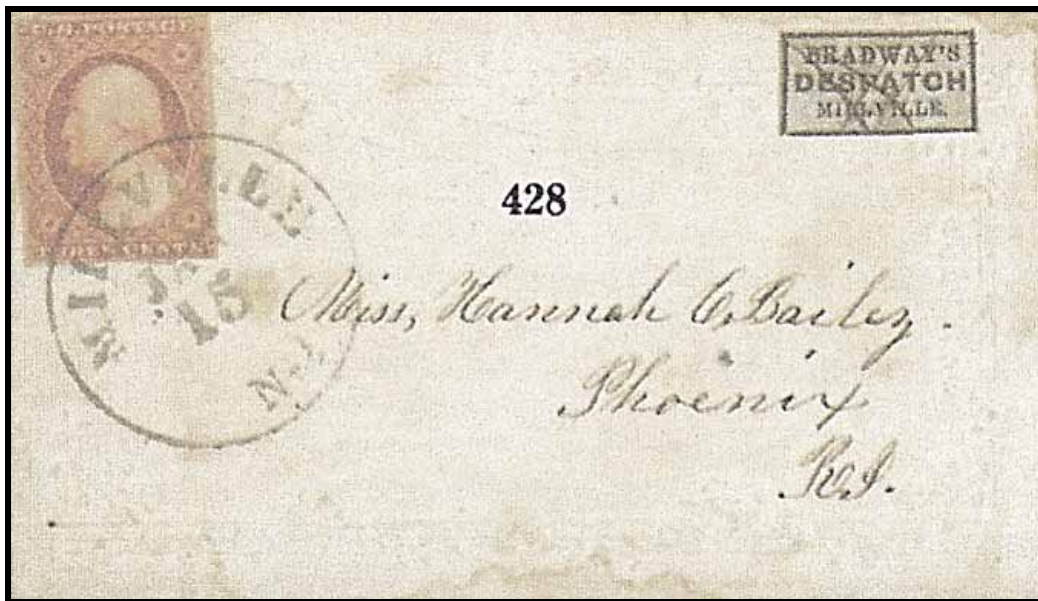 BRADWAY'S
DESPATCH
MILLVILLE.
MILLVILLE
15
N.J.
428
Miss, Hannah C. Bailey.
Phoenix
R.I.